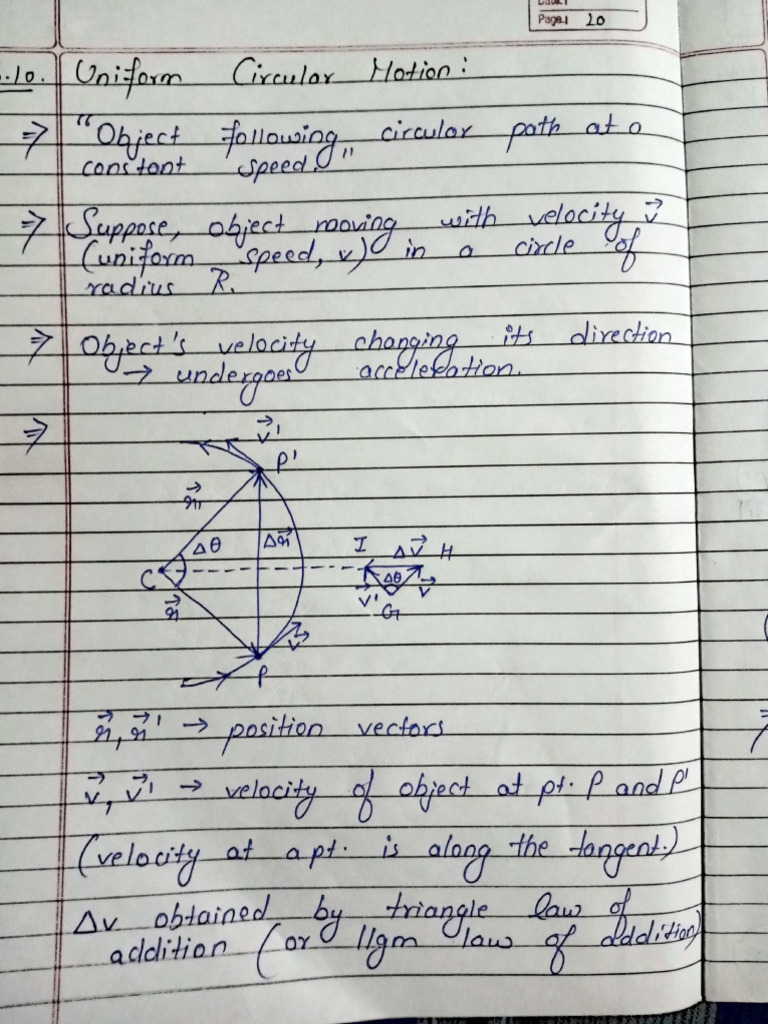 Page.: 20
.10. Uniform Circular Motion:
⇒ "Object following circular path at a
constant speed."
⇒ Suppose, object moving with velocity v⃗
(uniform speed, v) in a circle of
radius R.
⇒ Object's velocity changing its direction
→ undergoes acceleration.
⇒
v⃗'
P'
r⃗'
Δθ
Δr⃗
I Δv⃗ H
C
Δθ
v⃗' v⃗
G
r⃗
v⃗
P
r⃗, r⃗' → position vectors
v⃗, v⃗' → velocity of object at pt. P and P'
(velocity at a pt. is along the tangent.)
Δv obtained by triangle law of
addition (or llgm law of addition)